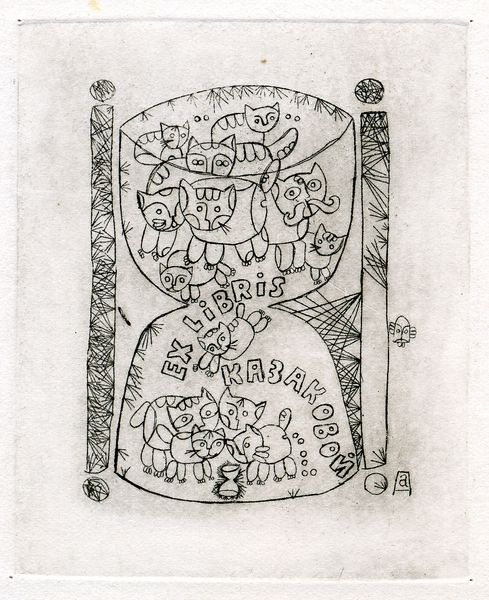 EX LiBRiS
КАЗАКОВОЙ
a